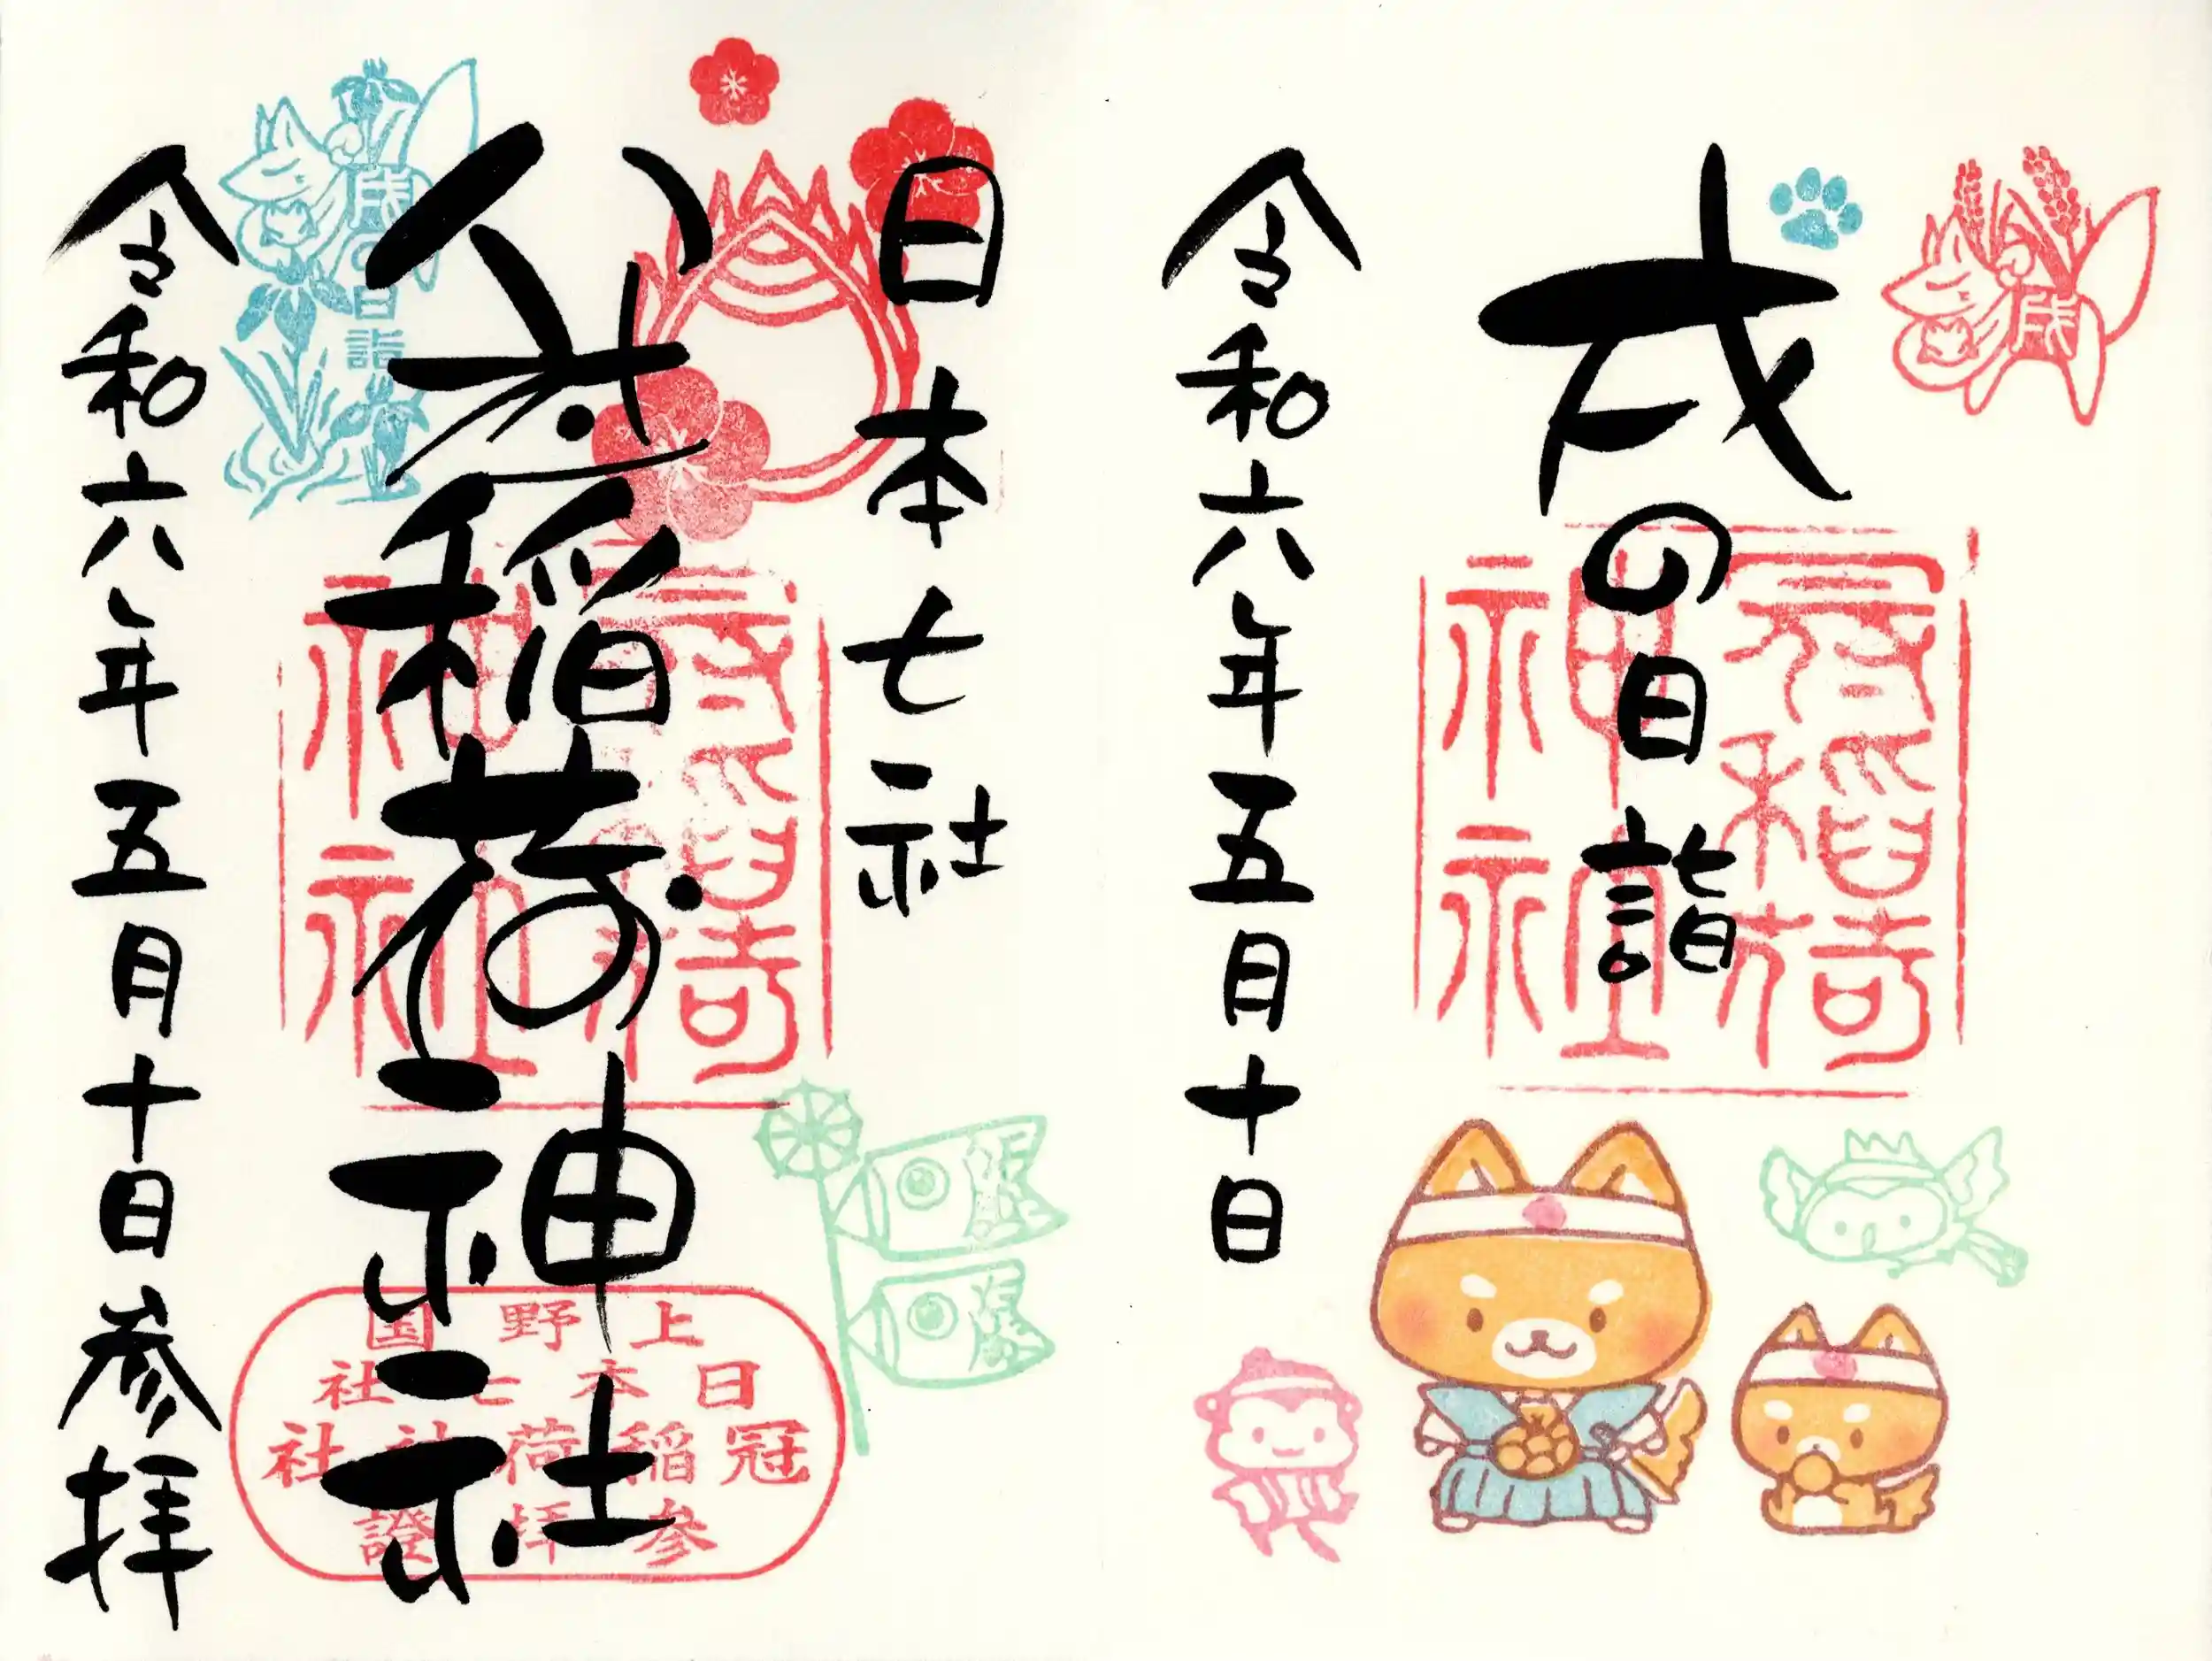 戌の日詣
令和六年五月十日
戌
冠稲荷
神社
日本七社
冠稲荷神社
令和六年五月十日参拝
戌の日詣
冠稲荷
神社
上野国
日本七社
冠稲荷神社
参拝證